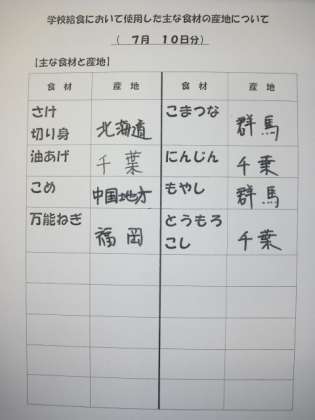 学校給食において使用した主な食材の産地について
（　７月　１０日分）
【主な食材と産地】
食　材　産　地　食　材　産　地
さけ
切り身　北海道　こまつな　群馬
油あげ　千葉　にんじん　千葉
こめ　中国地方　もやし　群馬
万能ねぎ　福岡　とうもろ
こし　千葉